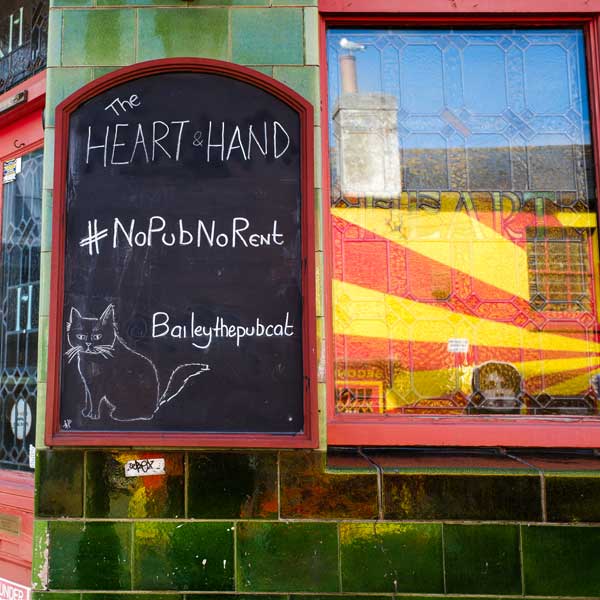 The
HEART & HAND
#NoPubNoRent
Baileythepubcat
HEART
UNDER